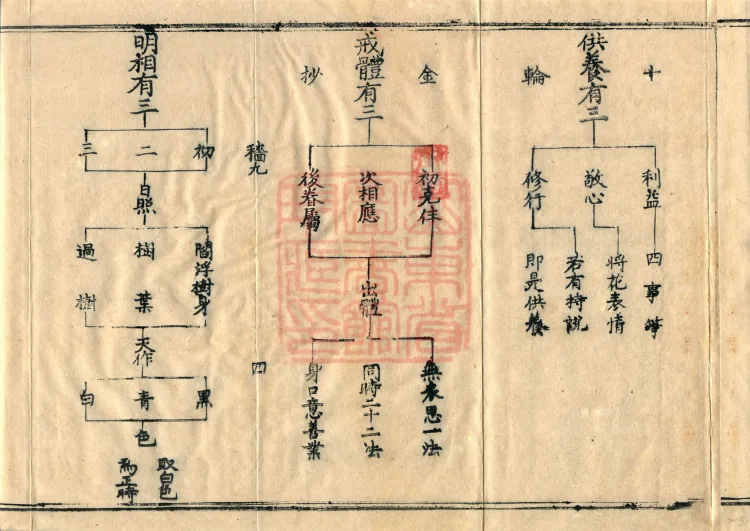 供養有三
利益
四事等
敬心
將花表情
修行
若有持說
即是供養
十輪
金抄
戒體有三
初克性
次相應
後眷屬
出體
無表思一法
同時二十二法
身口意善業
九
四
明相有三
初
二
三
日照
閻浮樹身
樹葉
過樹
天作
黑
青
白
色
取白色
為正時